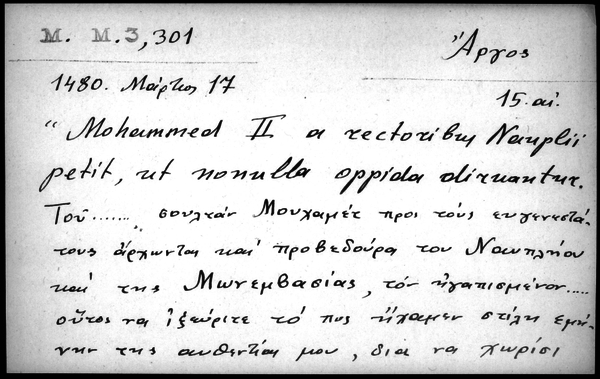 M. M.3,301
Ἄργος
1480. Μάρτιος 17
15. αἰ.
“Mohammed II a rectoribus Nauplii
petit, ut nonnulla oppida diruantur.
Τοῦ....... σουλτάν Μουχαμέτ προς τούς ευγενεστά-
τους ἄρχωντας καί προβεδούρα του Ναυπλήου
καί της Μωνεμβασίας, τόν ἠγαπισμένον.....
οὕτος να ἰξεύριτε τό πως ἤχαμεν στίλη εμή-
νην της αυθεντίας μου, δια να χωρίσι